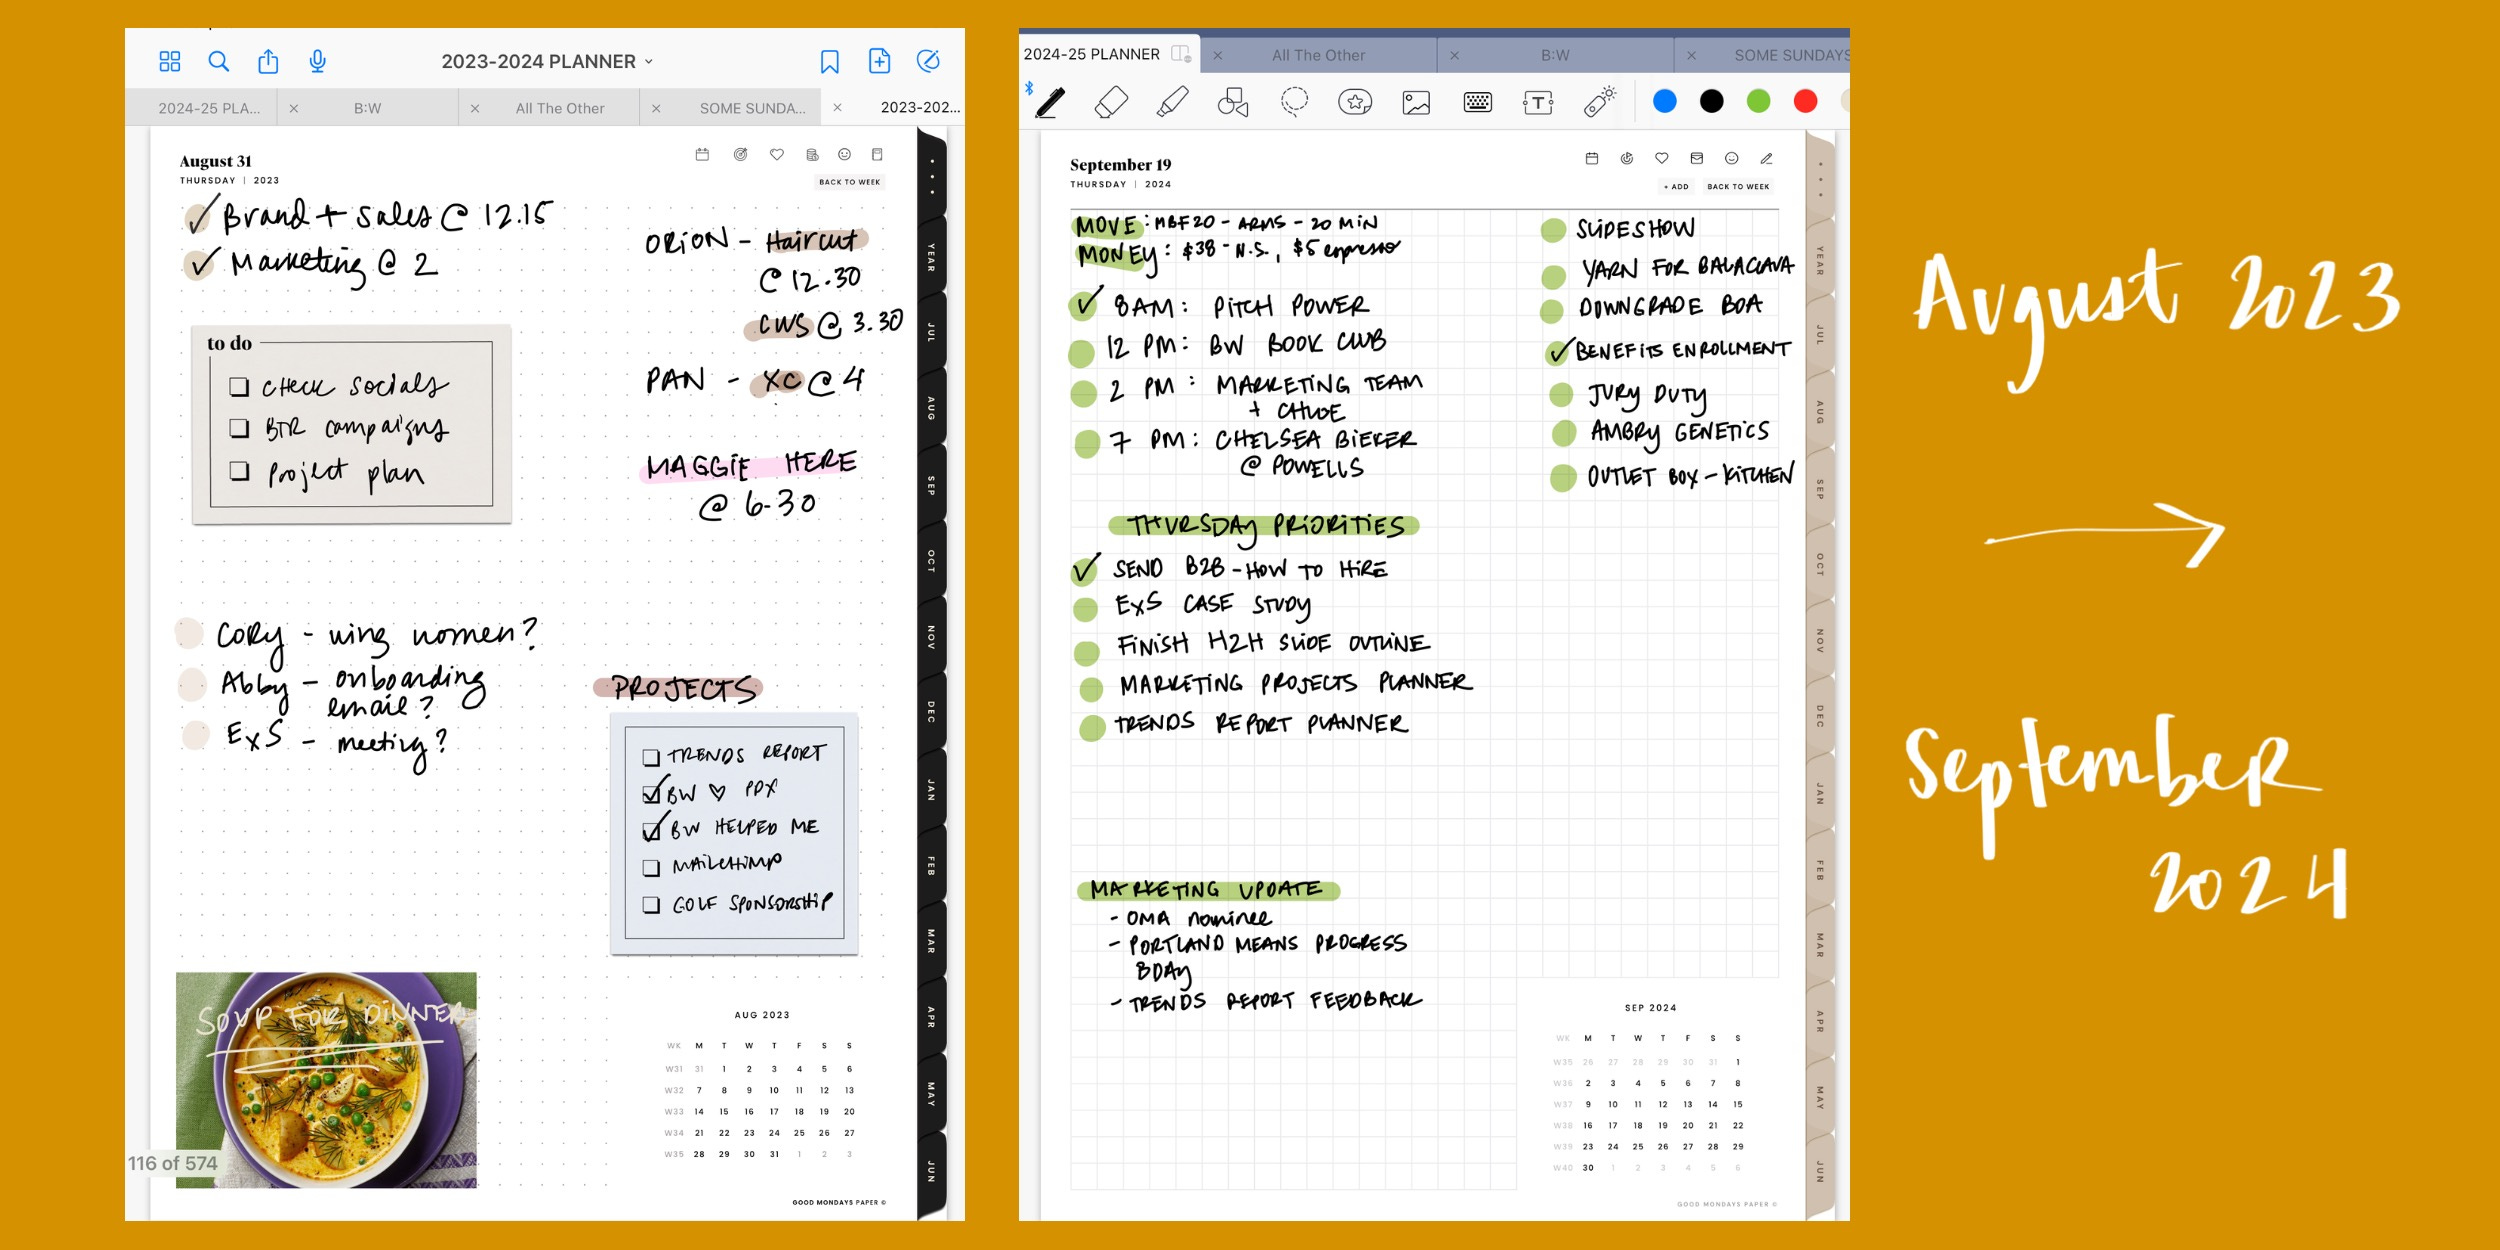 2023-2024 PLANNER
2024-25 PLA...
B:W
All The Other
SOME SUNDA...
2023-202...
August 31
THURSDAY | 2023
BACK TO WEEK
Brand + Sales @ 12.15
Marketing @ 2
to do
CHECK SOCIALS
BTR campaigns
Project plan
ORION - Haircut
@ 12.30
CWS @ 3.30
PAN - XC @ 4
MAGGIE HERE
@ 6-30
CORY - wing women?
Abby - onboarding
email?
ExS - meeting?
PROJECTS
TRENDS REPORT
BW ♡ PDX
BW HELPED ME
MAILCHIMP
GOLF SPONSORSHIP
SOUP FOR DINNER
116 of 574
AUG 2023
WK M T W T F S S
W31 31 1 2 3 4 5 6
W32 7 8 9 10 11 12 13
W33 14 15 16 17 18 19 20
W34 21 22 23 24 25 26 27
W35 28 29 30 31 1 2 3
GOOD MONDAYS PAPER ©
YEAR
JUL
AUG
SEP
OCT
NOV
DEC
JAN
FEB
MAR
APR
MAY
JUN
2024-25 PLANNER
All The Other
B:W
SOME SUNDAYS
T
September 19
THURSDAY | 2024
+ ADD
BACK TO WEEK
MOVE: MBF20 - ARMS - 20 MIN
MONEY: $38 - N.S., $5 espresso
8AM: PITCH POWER
12 PM: BW BOOK CLUB
2 PM: MARKETING TEAM
+ CHLOE
7 PM: CHELSEA BIEKER
@ POWELLS
SLIDESHOW
YARN FOR BALACLAVA
DOWNGRADE BOA
BENEFITS ENROLLMENT
JURY DUTY
AMBRY GENETICS
OUTLET BOX - KITCHEN
THURSDAY PRIORITIES
SEND B2B - HOW TO HIRE
ExS CASE STUDY
FINISH H2H SLIDE OUTLINE
MARKETING PROJECTS PLANNER
TRENDS REPORT PLANNER
MARKETING UPDATE
- OMA nominee
- PORTLAND MEANS PROGRESS
BDAY
- TRENDS REPORT FEEDBACK
SEP 2024
WK M T W T F S S
W35 26 27 28 29 30 31 1
W36 2 3 4 5 6 7 8
W37 9 10 11 12 13 14 15
W38 16 17 18 19 20 21 22
W39 23 24 25 26 27 28 29
W40 30 1 2 3 4 5 6
GOOD MONDAYS PAPER ©
YEAR
JUL
AUG
SEP
OCT
NOV
DEC
JAN
FEB
MAR
APR
MAY
JUN
August 2023
September
2024